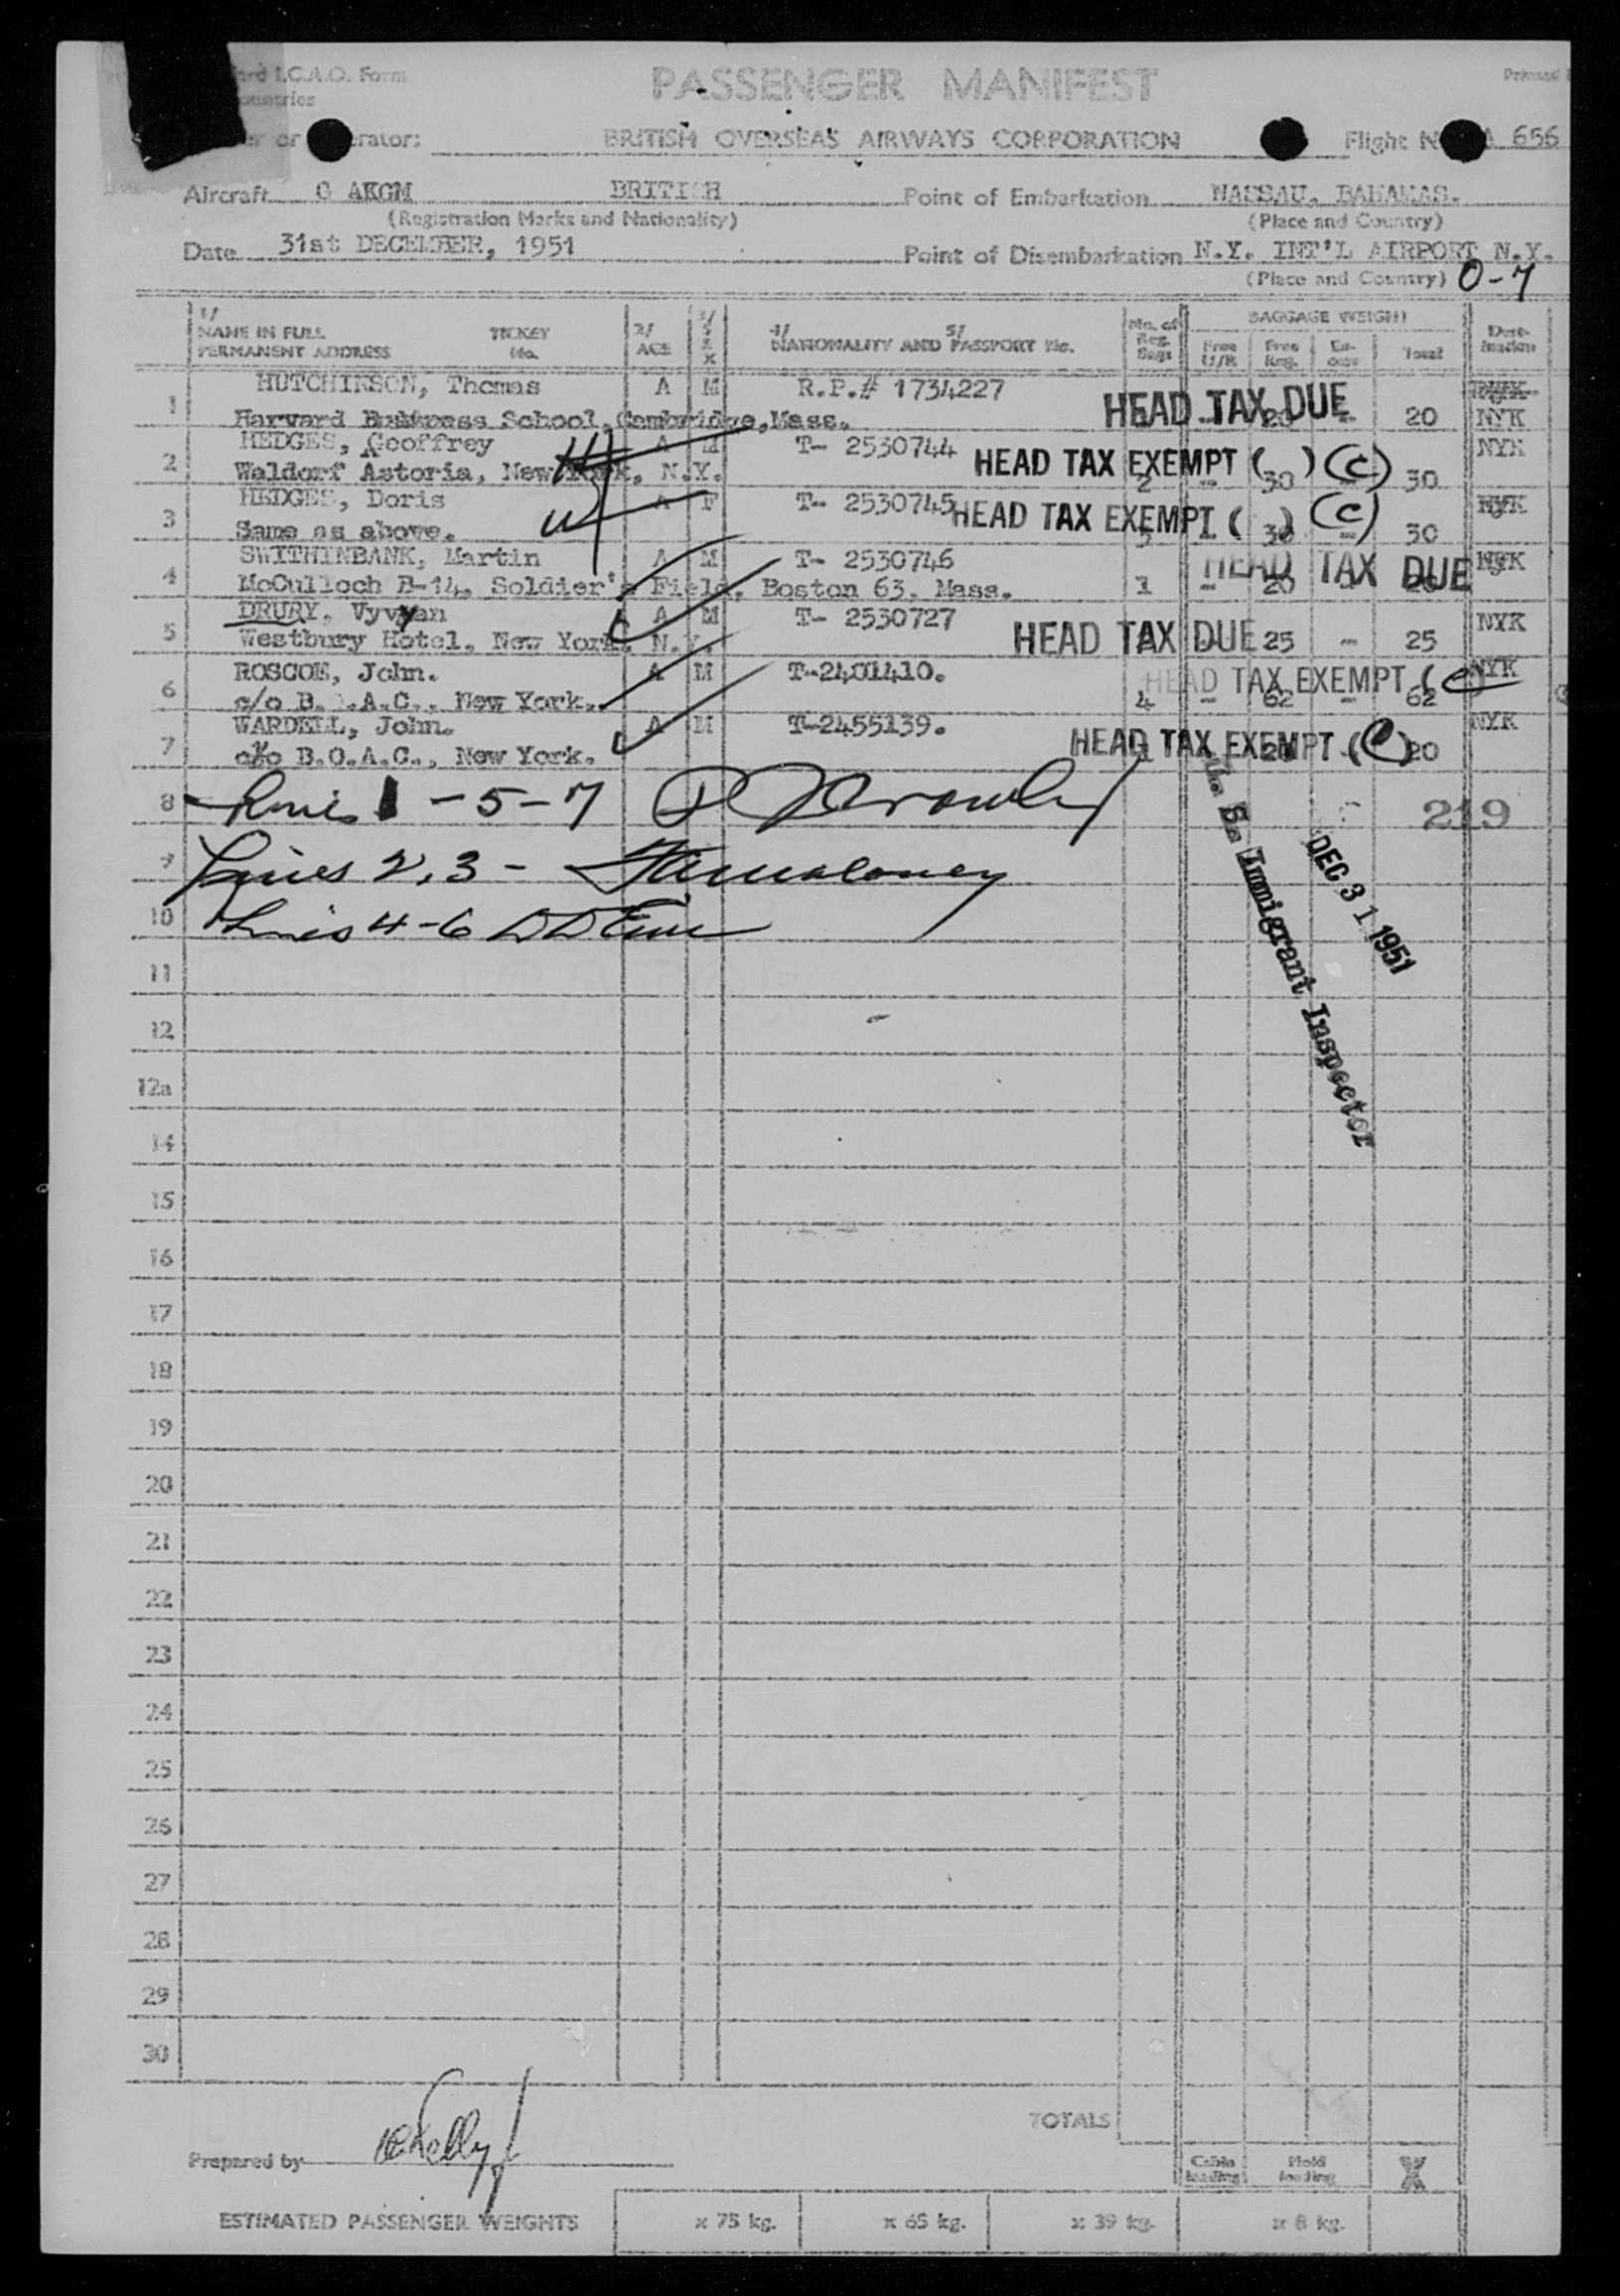 ard I.C.A.O. Form
ountries
PASSENGER MANIFEST
er or erator: BRITISH OVERSEAS AIRWAYS CORPORATION Flight N A 656
Aircraft G AKGM BRITISH Point of Embarkation NASSAU, BAHAMAS.
(Registration Marks and Nationality) (Place and Country)
Date 31st DECEMBER, 1951 Point of Disembarkation N.Y. INT'L AIRPORT N.Y.
(Place and Country) 0-7
1/ NAME IN FULL TICKET 2/ 3/ 4/ 5/ No. of BAGGAGE WEIGHT Dest-
PERMANENT ADDRESS No. AGE SEX NATIONALITY AND PASSPORT No. Reg. Bags Free Free Reg. Ex-cess Total ination
HUTCHINSON, Thomas A M R.P.# 1734227
1 Harvard Business School, Cambridge, Mass. HEAD TAX DUE 20 - 20 NYK
HEDGES, Geoffrey A M T- 2530744 NYK
2 Waldorf Astoria, New York, N.Y. HEAD TAX EXEMPT ( ) (C) 2 - 30 30
HEDGES, Doris A F T- 2530745 NYK
3 Same as above. HEAD TAX EXEMPT ( ) (C) 3 30 - 30
SWITHINBANK, Martin A M T- 2530746 HEAD TAX DUE NYK
4 McCulloch B-14, Soldier's Field, Boston 63, Mass. 1 - 20 - 20
DRURY, Vyvyan A M T- 2530727 NYK
5 Westbury Hotel, New York, N.Y. HEAD TAX DUE 25 - 25
ROSCOE, John. A M T-2401410. HEAD TAX EXEMPT (C NYK
6 c/o B.O.A.C., New York. 4 - 62 - 62
WARDELL, John. A M T-2455139. NYK
7 c/o B.O.A.C., New York. HEAD TAX EXEMPT (C) 1 20 20
8 Lines 1 - 5 - 7 219
9 Lines 2, 3 -
10 Lines 4-6
U. S. Immigrant Inspector
DEC 31 1951
11
12
12a
14
15
16
17
18
19
20
21
22
23
24
25
26
27
28
29
30
TOTALS
Prepared by Kelly
Cabin loading Hold loading X
ESTIMATED PASSENGER WEIGHTS x 75 kg. x 65 kg. x 39 kg. x 8 kg.